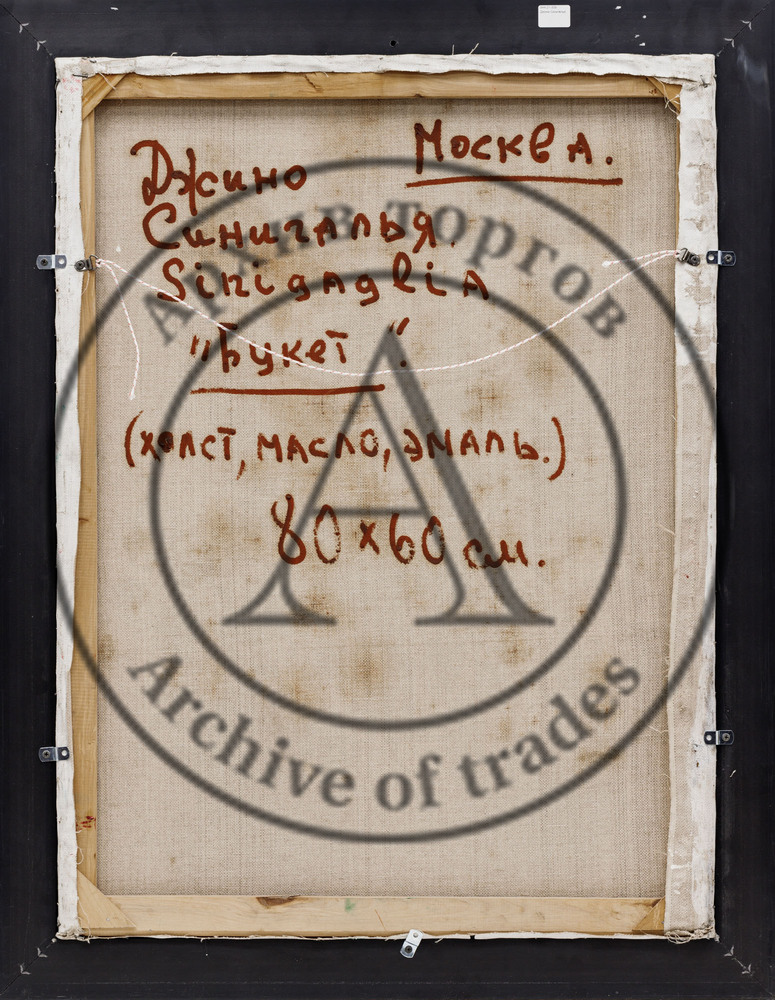 Москва.
Джино
Синигалья.
Sinigaglia
"Букет".
(холст, масло, эмаль.)
80 x 60 см.
Архив торгов
А
Archive of trades